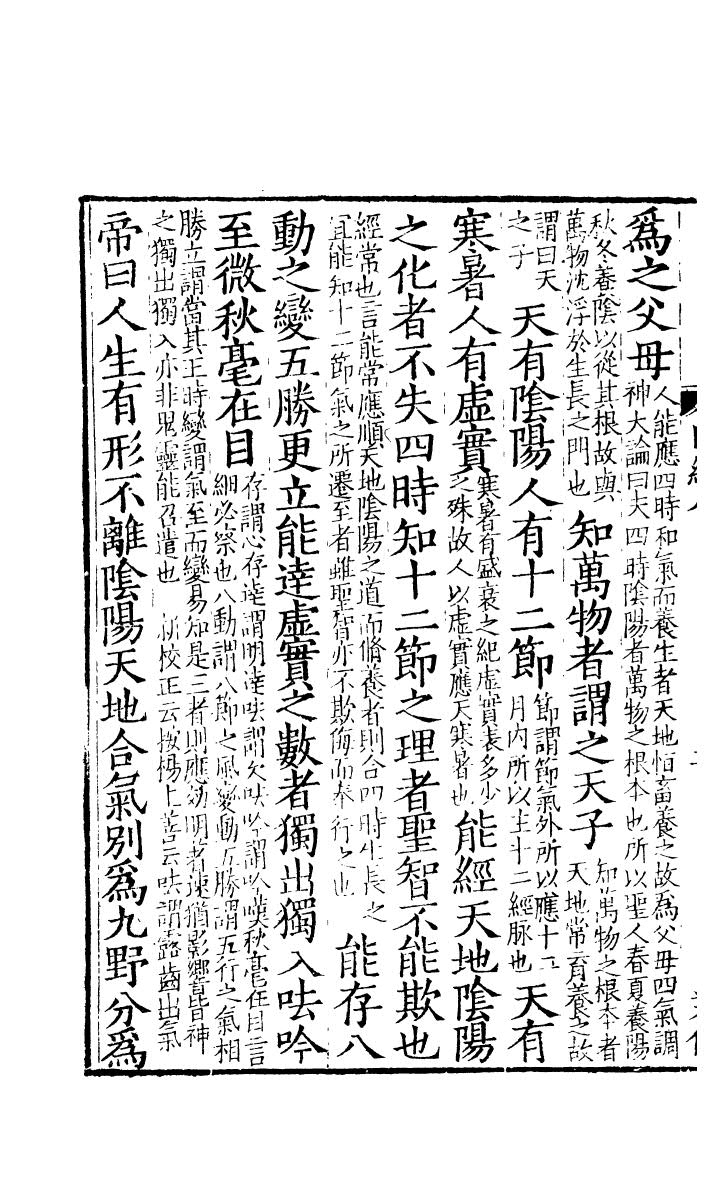 爲之父母人能應四時和氣而養生者天地恒畜養之故爲父母四氣調
神大論曰夫四時陰陽者萬物之根本也所以聖人春夏養陽
秋冬養陰以從其根故與
萬物沈浮於生長之門也
知萬物者謂之天子知萬物之根本者
天地常育養之故
謂曰天
之子
天有陰陽人有十二節節謂節氣外所以應十二
月内所以主十二經脉也
天有
寒暑人有虚實寒暑有盛衰之紀虚實表多少
之殊故人以虚實應天寒暑也
能經天地陰陽
之化者不失四時知十二節之理者聖智不能欺也
經常也言能常應順天地陰陽之道而脩養者則合四時生長之
宜能知十二節氣之所遷至者雖聖智亦不欺侮而奉行之也
能存八
動之變五勝更立能達虚實之數者獨出獨入呿吟
至微秋毫在目存謂心存達謂明達呿謂欠呿吟謂吟嘆秋毫在目言
細必察也八動謂八節之風變動五勝謂五行之氣相
勝立謂當其王時變謂氣至而變易知是三者則應効明著速猶影響皆神
之獨出獨入亦非鬼靈能召遣也　新校正云按楊上善云呿謂露齒出氣
帝曰人生有形不離陰陽天地合氣別爲九野分爲